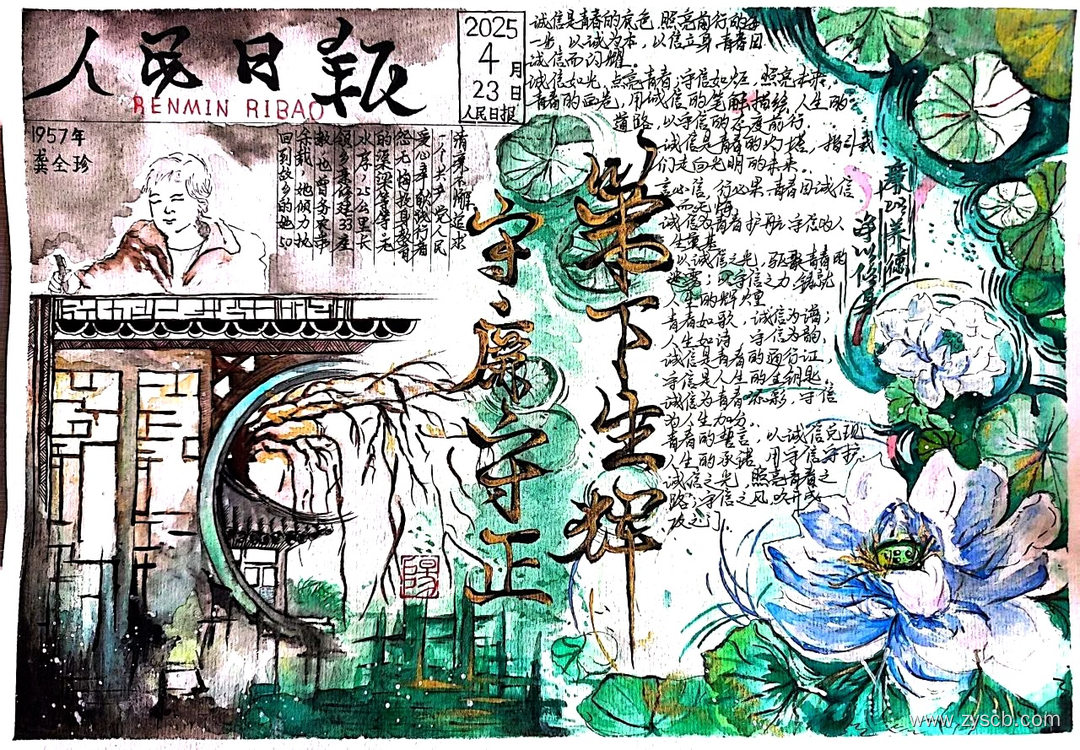 人民日报
RENMIN RIBAO
2025
4月
23日
人民日报
1957年
龚全珍
清廉不懈追求
一个共产党人民
爱心奉献践行者
怨无悔投身教育
的渠梁等等无
水库、25公里长
领乡亲修建33座
教也曾务农带
余载,她倾力执
回到故乡的她50
守廉守正
笔下生辉
诚信是青春的底色,照亮前行的每
一步,以诚为本,以信立身,青春因
诚信而闪耀。
诚信如光,点亮青春;守信如炬,照亮未来,
青春的画卷,用诚信的笔触描绘,人生的
道路,以守信的态度前行。
诚信是青春的灯塔,指引我
们走向光明的未来。
言必信,行必果,青春因诚信
而无悔
诚信为青春护航,守信为人
生奠基
以诚信之光,驱散青春的
迷雾;以守信之力,铸就
人生的辉煌
青春如歌,诚信为谱;
人生如诗,守信为韵,
诚信是青春的通行证,
守信是人生的金钥匙。
诚信为青春添彩,守信
为人生加分。
青春的誓言,以诚信兑现
人生的承诺,用守信守护。
诚信之光,照亮青春之
路;守信之风,吹开成
功之门。
养德
净以修身
www.zyscb.com